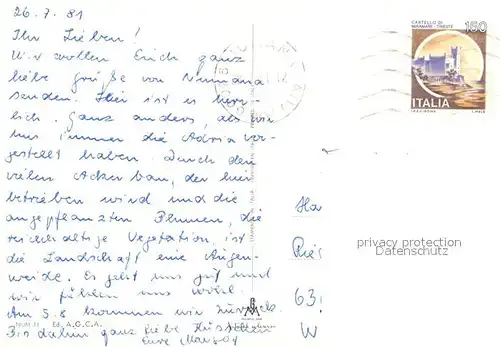 26.7.81
Ihr Lieben!
Wir wollen Euch ganz
liebe Grüße von Numana
senden. Hier ist es herr-
lich. Ganz anders, als wir
uns immer die Adria vor-
gestellt haben. Durch den
vielen Ackerbau, der hier
betrieben wird und die
angepflanzten Blumen, die
reichhaltige Vegetation, ist
die Landschaft eine Augen-
weide. Es geht uns gut und
wir fühlen uns wohl.
Am 5.8 kommen wir zurück.
Bis dahin ganz liebe Küsschen
Eure
NUM 31 Ed. A.G.C.A.
CASTELLO DI
MIRAMARE - TRIESTE
150
ITALIA
Ha
Ries
privacy protection
Datenschutz
63
W